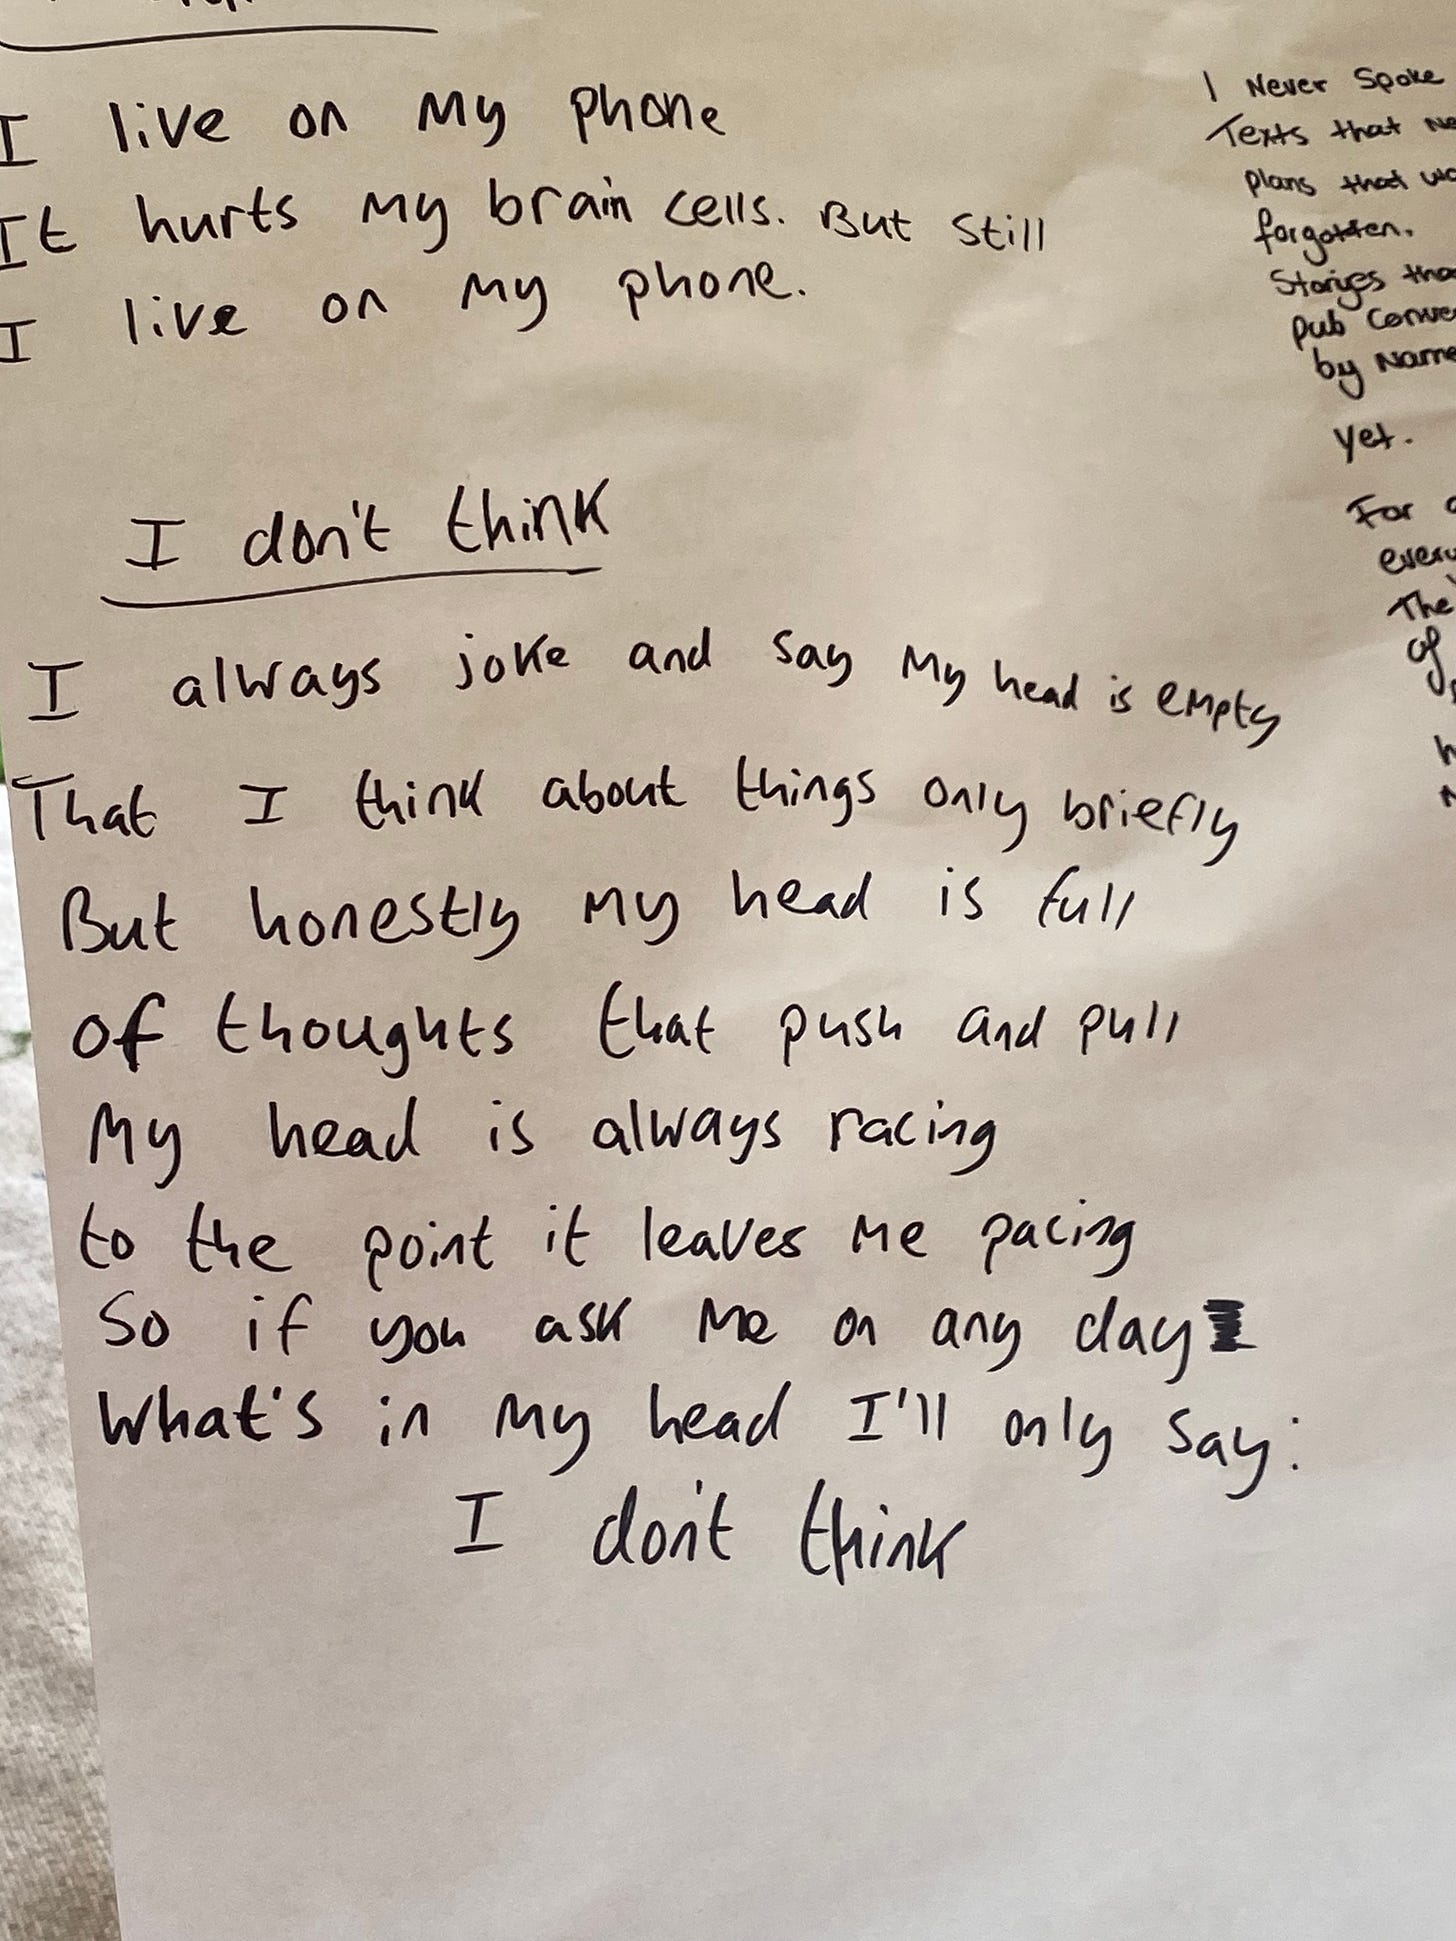 I live on my phone
It hurts my brain cells. But still
I live on my phone.
I don't think
I always joke and say my head is empty
That I think about things only briefly
But honestly my head is full
of thoughts that push and pull
My head is always racing
to the point it leaves me pacing
So if you ask me on any day
What's in my head I'll only say:
I don't think
I Never Spoke
Texts that
plans that
forgotten.
Stories
pub
by
yet.
For
The
of